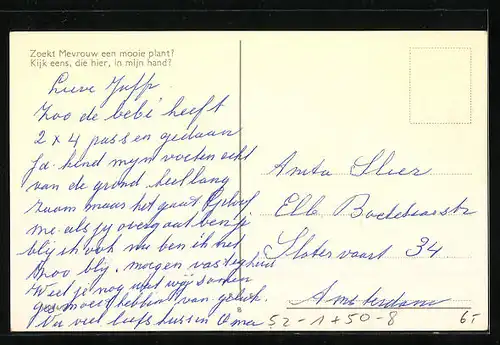 Zoekt Mevrouw een mooie plant?
Kijk eens, die hier, in mijn hand?
Lieve Juff
Zoo de bebi heeft
2 x 4 passen gedaan
Ja kind mijn voeten echt
van de grond heel lang
zaam maar het gaat
me als jij overgaat ben je
blij ik ook nu ben ik net
Zoo blij. morgen vast
Weet je nog wat wij samen
gesmoest hebben van geluk.
Nu veel liefs tussen Oma
Anita
Elb.
Slotervaart 34
Amsterdam
52-1+50-8
65